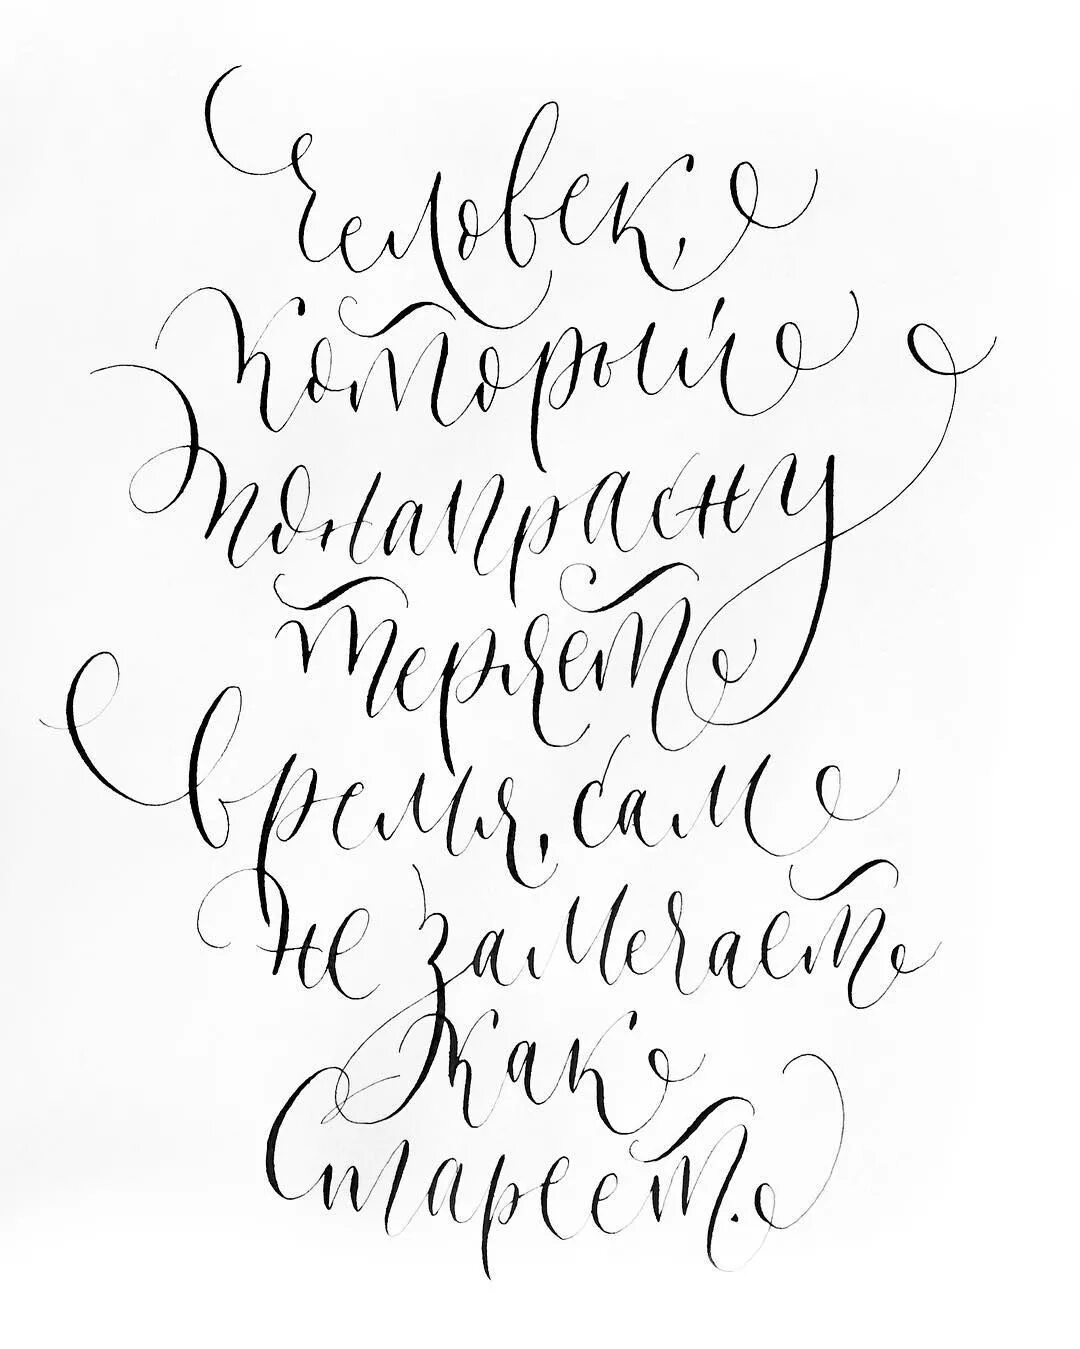 Человек,
Который
понапрасну
теряет
время, сам
не замечает
как
стареет.